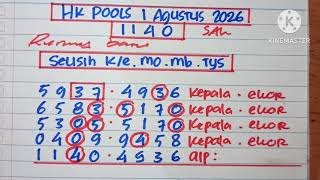 HK POOLS 1 AGUSTUS 2026
1140 SAH
Rumus baru
KINEMASTER
SELISIH K/E. MO. MB. TYS
5937 · 4936 Kepala . ekor
6583 · 5170 Kepala . ekor
5305 · 5170 Kepala . ekor
0409 · 9458 Kepala . ekor
1140 · 4936 alp: